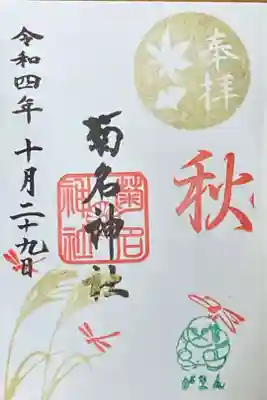 奉拝
秋
菊名神社
菊名神社
令和四年 十月二十九日
がまんさん